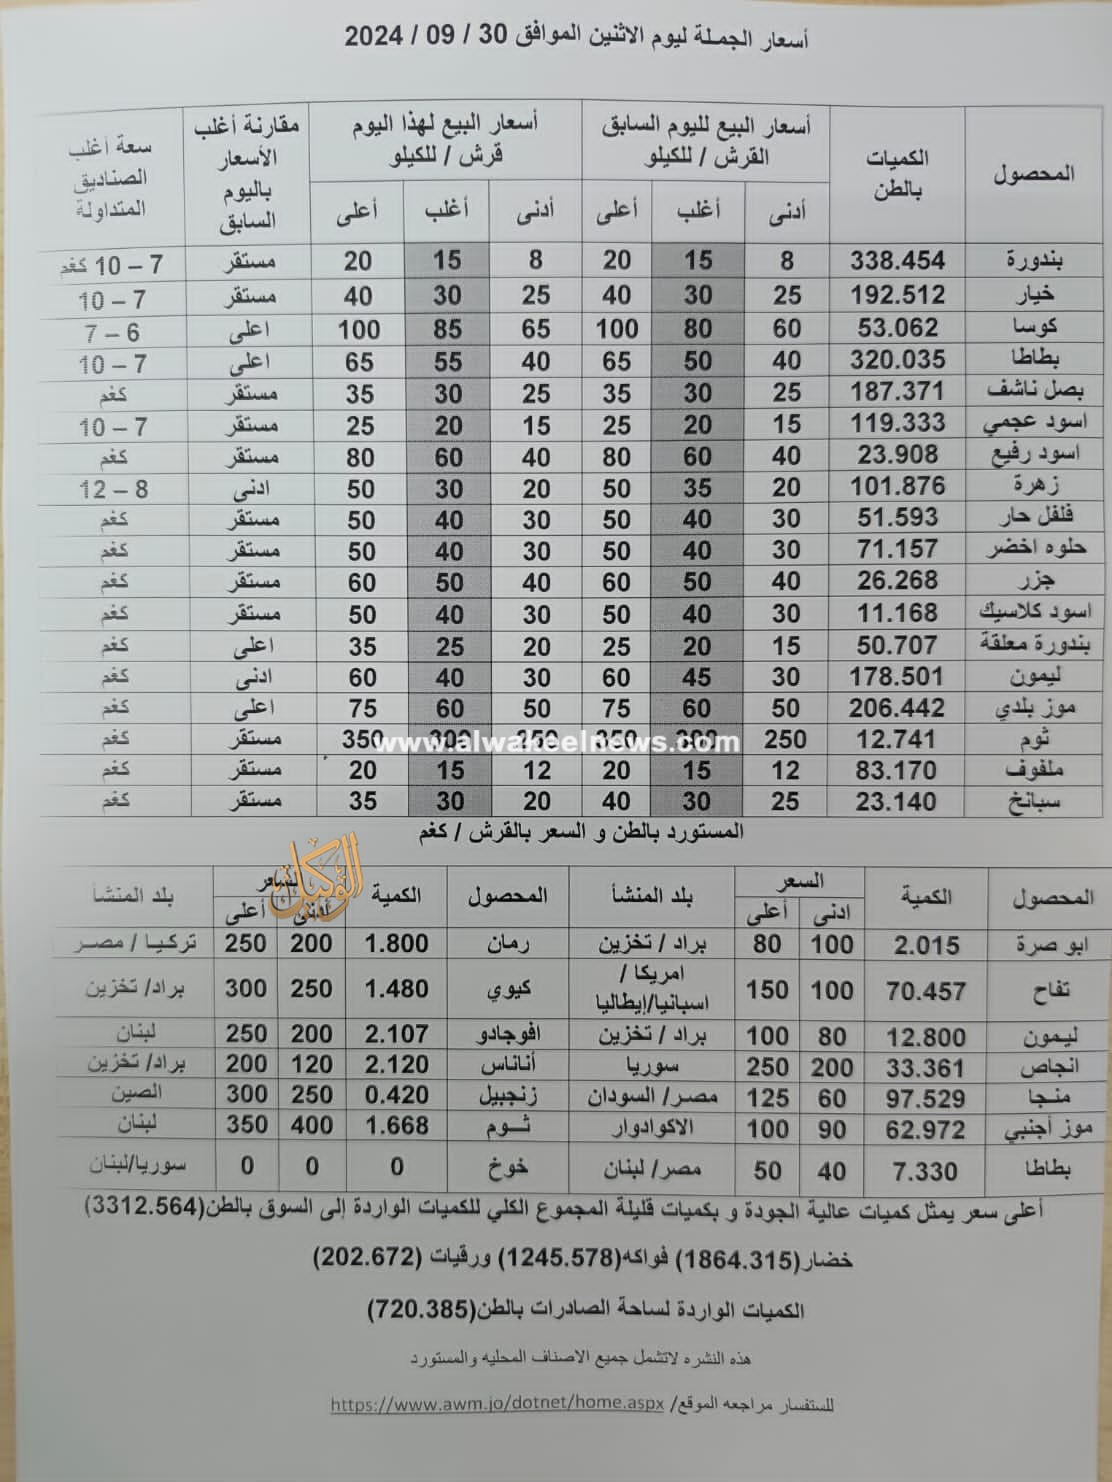 أسعار الجملة ليوم الاثنين الموافق 30 / 09 / 2024
المحصول الكميات بالطن أسعار البيع لليوم السابق القرش / للكيلو أسعار البيع لهذا اليوم قرش / للكيلو مقارنة أغلب الأسعار باليوم السابق سعة أغلب الصناديق المتداولة
أدنى أغلب أعلى أدنى أغلب أعلى
بندورة 338.454 8 15 20 8 15 20 مستقر 7 – 10 كغم
خيار 192.512 25 30 40 25 30 40 مستقر 7 – 10
كوسا 53.062 60 80 100 65 85 100 اعلى 6 – 7
بطاطا 320.035 40 50 65 40 55 65 اعلى 7 – 10
بصل ناشف 187.371 25 30 35 25 30 35 مستقر كغم
اسود عجمي 119.333 15 20 25 15 20 25 مستقر 7 – 10
اسود رفيع 23.908 40 60 80 40 60 80 مستقر كغم
زهرة 101.876 20 35 50 20 30 50 ادنى 8 – 12
فلفل حار 51.593 30 40 50 30 40 50 مستقر كغم
حلوه اخضر 71.157 30 40 50 30 40 50 مستقر كغم
جزر 26.268 40 50 60 40 50 60 مستقر كغم
اسود كلاسيك 11.168 30 40 50 30 40 50 مستقر كغم
بندورة معلقة 50.707 15 20 25 20 25 35 اعلى كغم
ليمون 178.501 30 45 60 30 40 60 ادنى كغم
موز بلدي 206.442 50 60 75 50 60 75 اعلى كغم
ثوم 12.741 250 300 350 250 300 350 مستقر كغم
www.alwakeelnews.com
ملفوف 83.170 12 15 20 12 15 20 مستقر كغم
سبانخ 23.140 25 30 40 20 30 35 مستقر كغم
المستورد بالطن و السعر بالقرش / كغم
الوكيل
المحصول الكمية السعر بلد المنشأ المحصول الكمية السعر بلد المنشأ
ادنى أعلى أدنى أعلى
ابو صرة 2.015 100 80 براد / تخزين رمان 1.800 200 250 تركيا / مصر
تفاح 70.457 100 150 امريكا / اسبانيا/إيطاليا كيوي 1.480 250 300 براد/ تخزين
ليمون 12.800 80 100 براد / تخزين افوجادو 2.107 200 250 لبنان
انجاص 33.361 200 250 سوريا أناناس 2.120 120 200 براد/ تخزين
منجا 97.529 60 125 مصر/ السودان زنجبيل 0.420 250 300 الصين
موز أجنبي 62.972 90 100 الاكوادوار ثوم 1.668 400 350 لبنان
بطاطا 7.330 40 50 مصر/ لبنان خوخ 0 0 0 سوريا/لبنان
أعلى سعر يمثل كميات عالية الجودة و بكميات قليلة المجموع الكلي للكميات الواردة إلى السوق بالطن(3312.564)
خضار(1864.315) فواكه(1245.578) ورقيات (202.672)
الكميات الواردة لساحة الصادرات بالطن(720.385)
هذه النشره لاتشمل جميع الاصناف المحليه والمستورد
للستفسار مراجعه الموقع/ https://www.awm.jo/dotnet/home.aspx